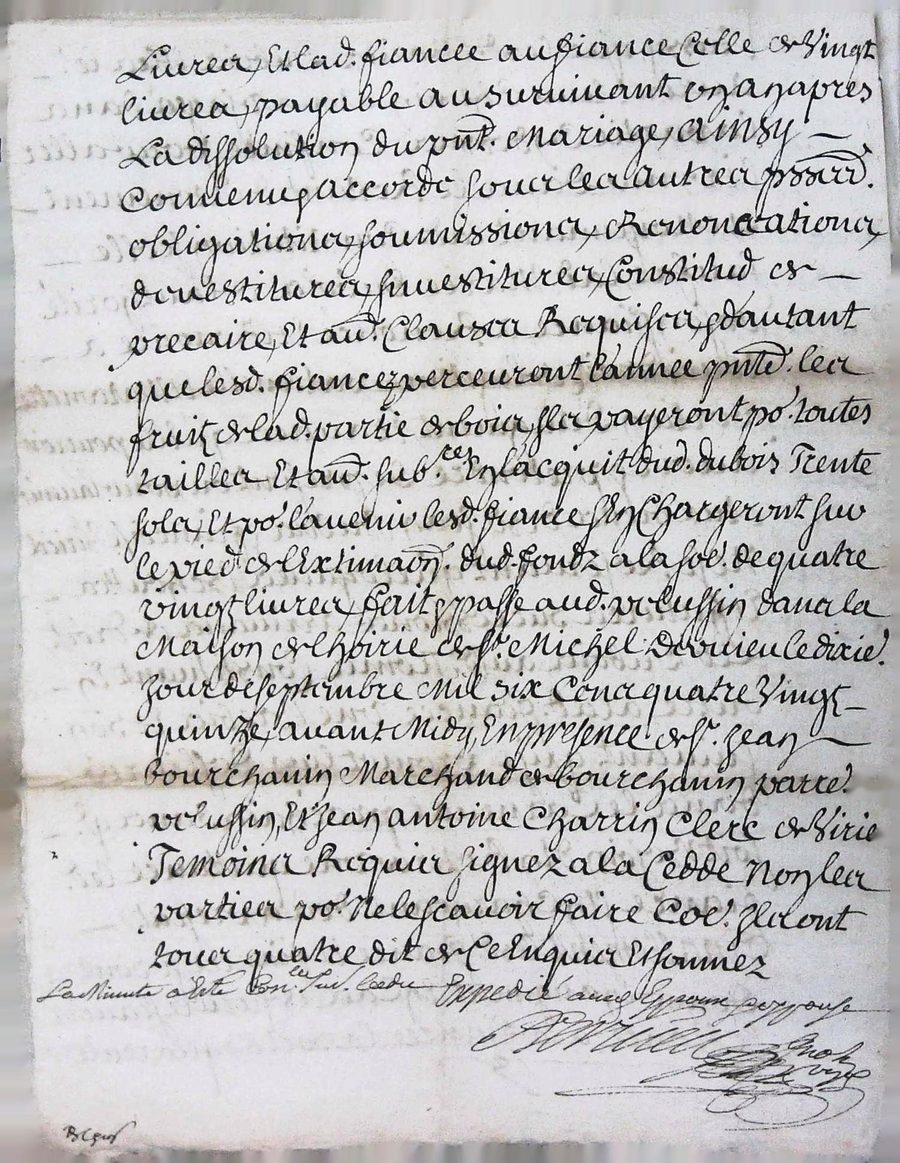 Livres, Et lad. fiancee au fiance Celle de Vingt
livres, payable au survivant un an apres
La dissolution du pnt. Mariage, Ainsy
Convenu, accordé soubs les autres
obligations, soumissions, & Renonciations,
devestitures, Investitures, Constitud de
precaire, Et au. Clauses Requises, & dautant
que lesd. fiancez perceuront Lannee pnte. les
fruitz de lad. partie de bois, Ils payeront po. toutes
tailles Et au. sub.ces En lacquit dud. dubois Trente
sols, Et po. lavenir lesd. fiance sen Chargeront sur
le pied de lExtimaon. dud. fondz a la so. de quatre
vingt livres, fait & passe aud. pelussin dans la
Maison de lhoirie de sr. Michel Dervieu le dixie.
Jour de septembre Mil six Cens quatre Vingt
quinze, avant Midy, En presence de sr. Jean
bourchanin Marchand de bourchanin parre.
pelussin, Et Jean antoine Charrin Clerc de Virie
Temoins Requis signez a la Cedde Non les
parties po. Ne le scavoir faire Coe. Ils ont
tous quatre dit de Ce Enquis Et sommez
La Minute a Esté Con.lee
Expedié